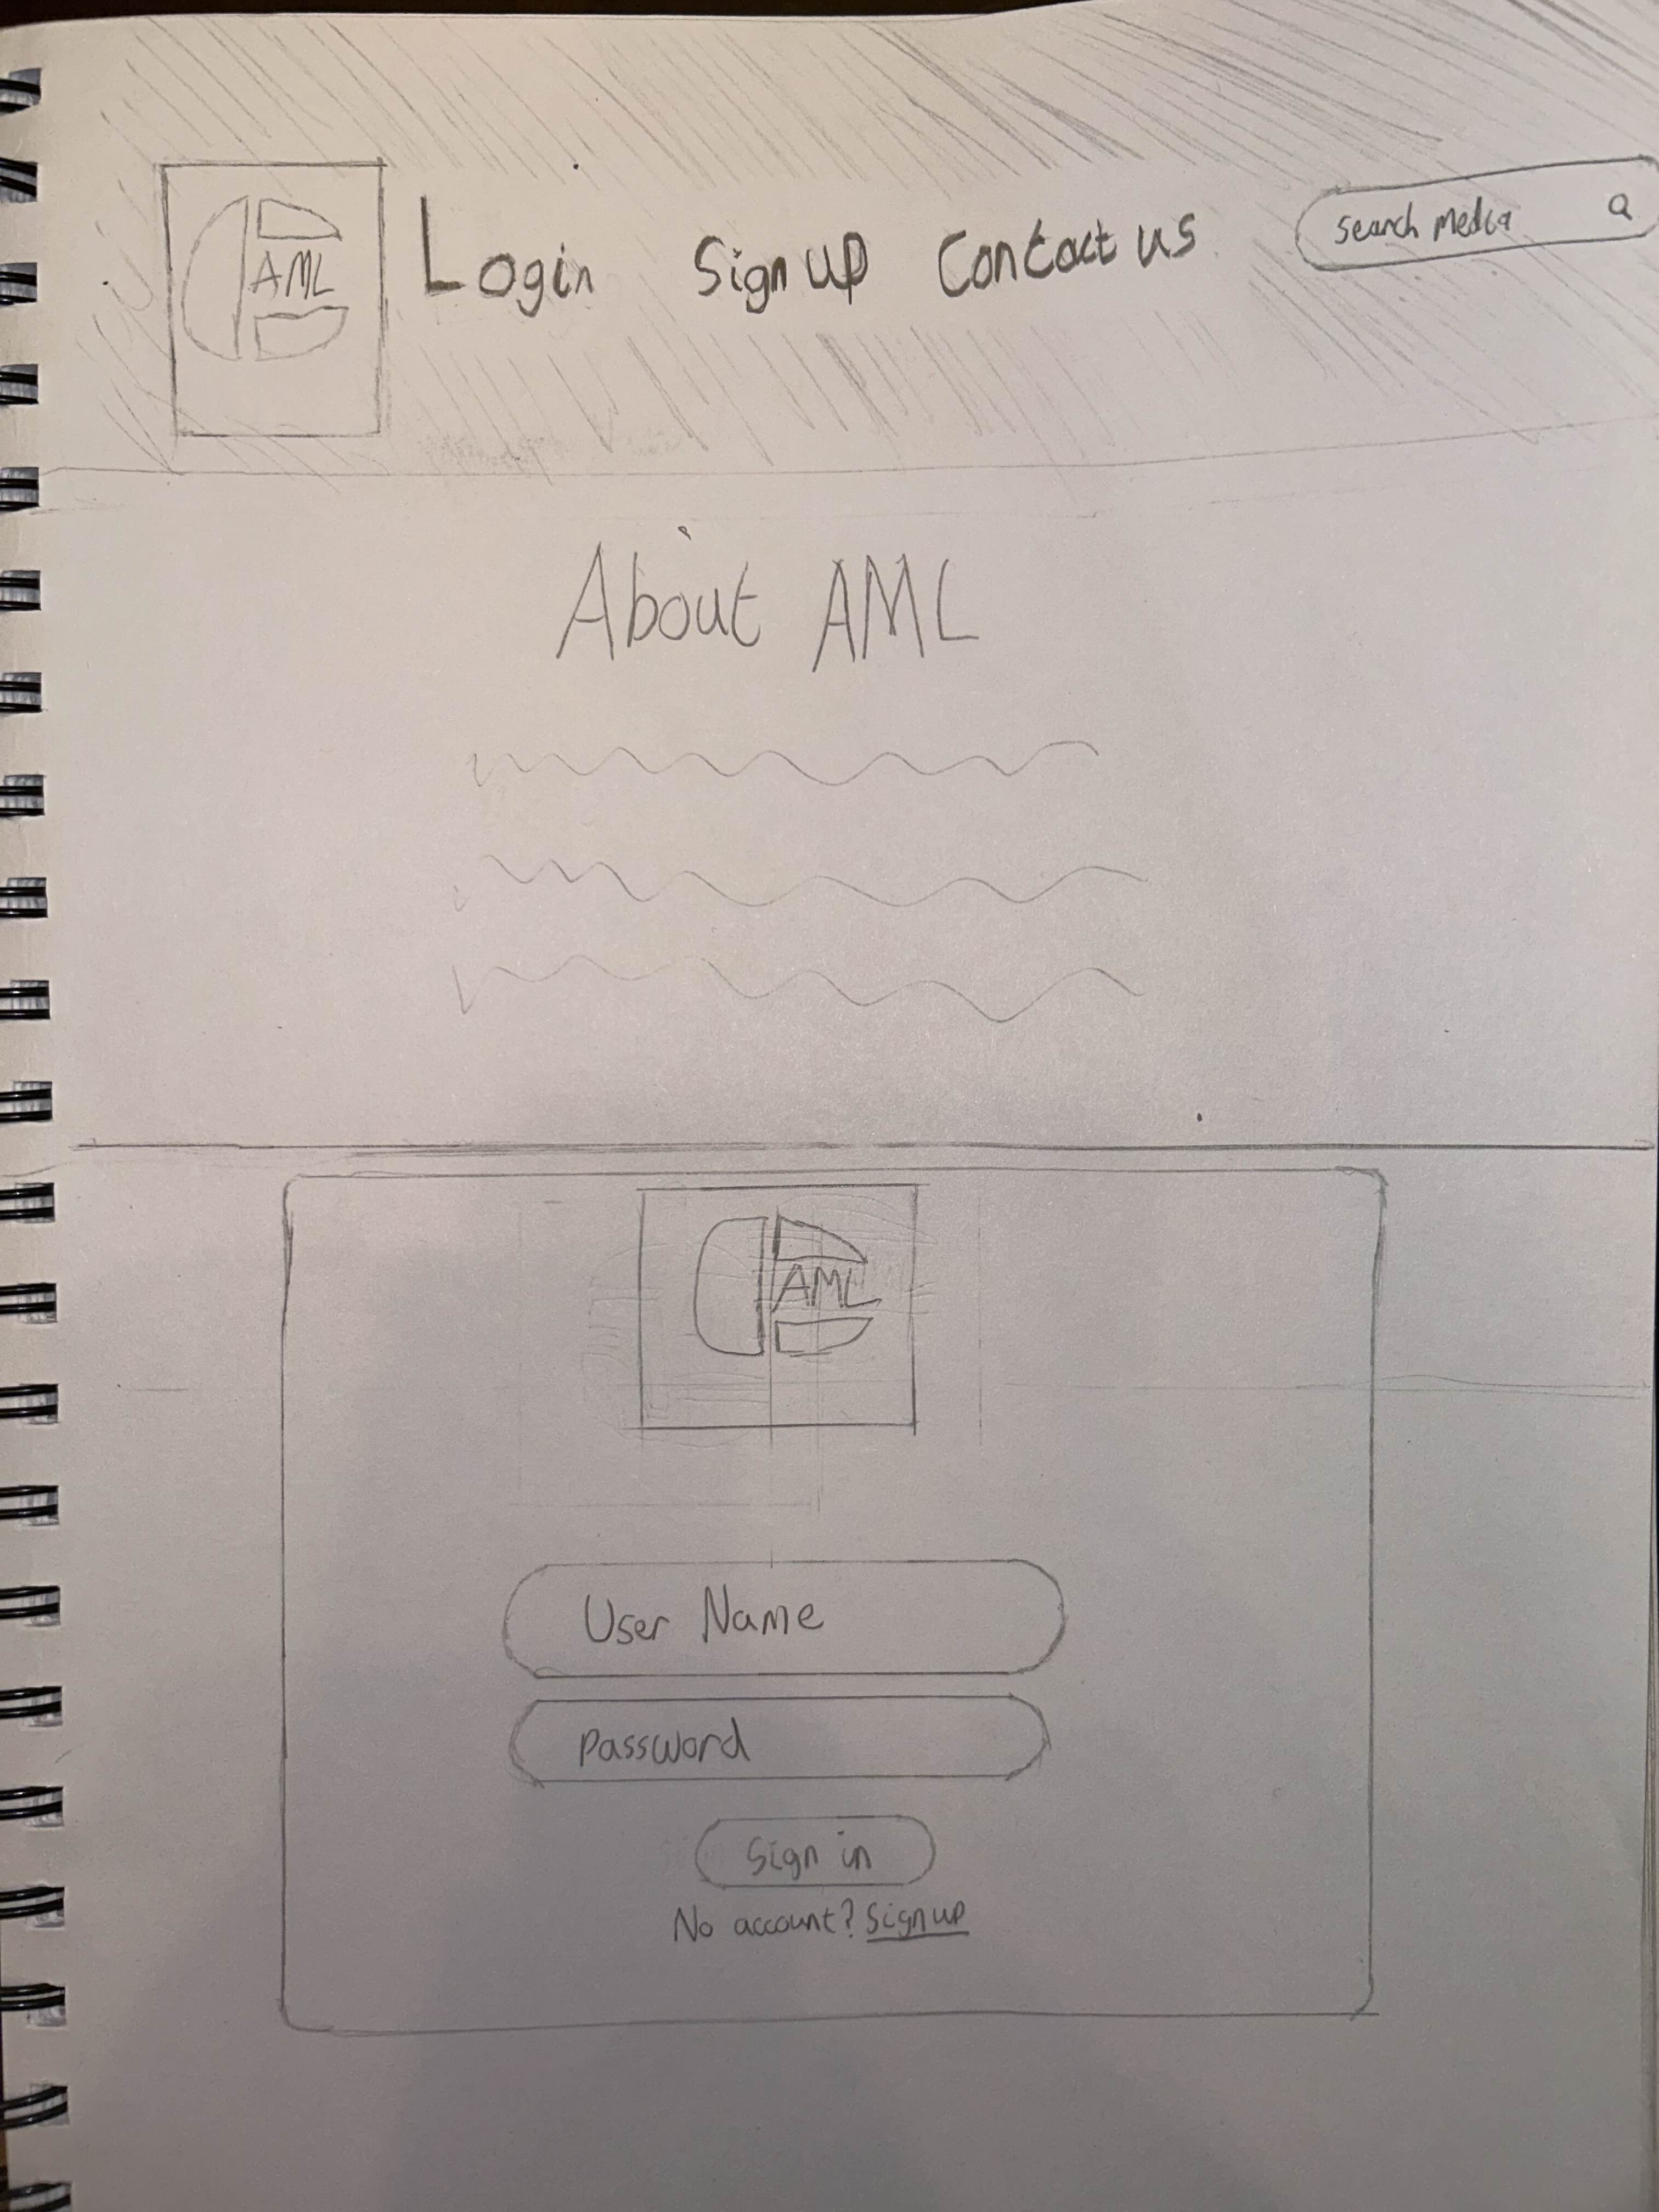 AML
Login Sign up Contact us
Search Media
About AML
AML
User Name
Password
Sign in
No account? Sign up